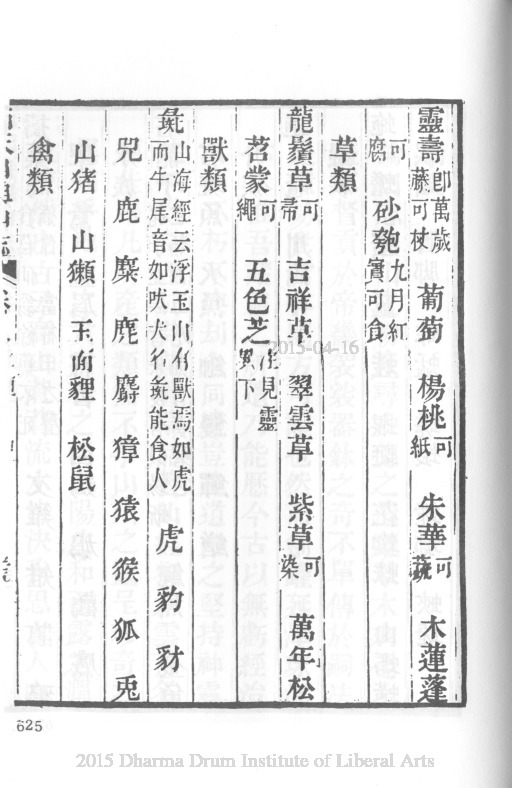 靈壽即萬歲藤可杖 葡萄 楊桃可紙 朱華可蔬 木蓮蓬
可腐 砂匏九月紅實可食
草類
龍鬚草可席 吉祥草 翠雲草 紫草可染 萬年松
苕蒙可繩 五色芝注見靈下
獸類
彘山海經云浮玉山有獸焉如虎而牛尾音如吠犬名彘能食人 虎 豹 豺
兕 鹿 麋 麂 麝 獐 猿 猴 狐 兎
山猪 山獺 玉面貍 松鼠
禽類
625
2015-04-16
2015 Dharma Drum Institute of Liberal Arts